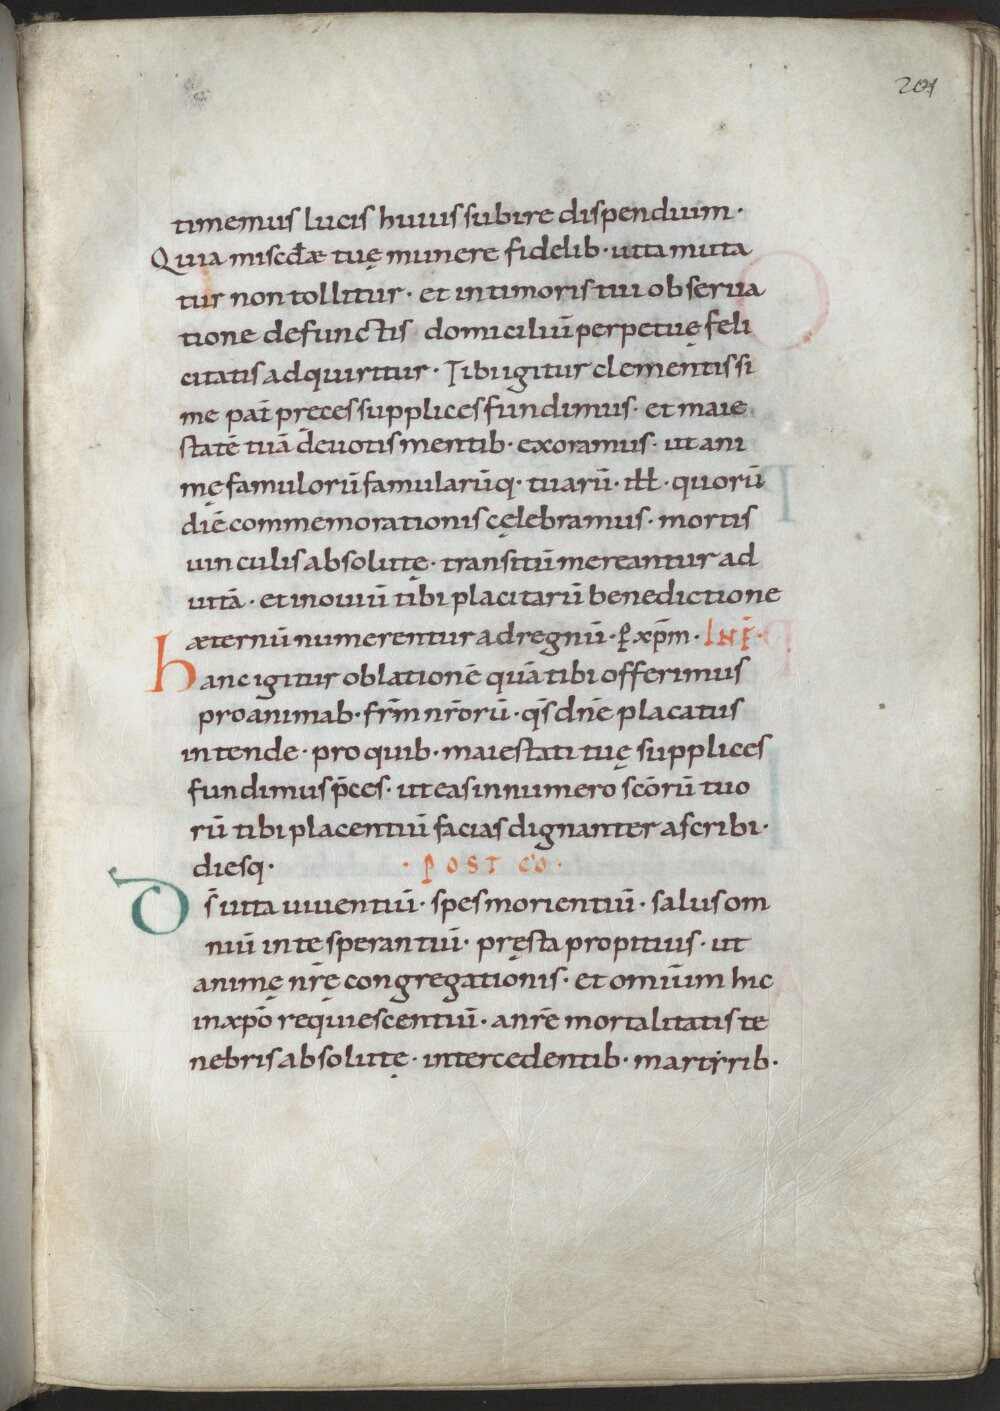 201
timemus lucis huius subire dispendium·
Quia misc̄dæ tuę munere fidelib· uita muta
tur non tollitur· et in timoris tui obserua
tione defunctis domiciliū perpetuę feli
citatis adquiritur· Tibi igitur clementissi
me pat̄ preces supplices fundimus· et maie
statē tuā deuotis mentib· exoramus· ut ani
mę famulorū famularūq· tuarū· ill̄· quorū
diē commemorationis cęlebramus· mortis
uinculis absolutę· transitū mereantur ad
uitā· et in ouiū tibi placitarū benedictione
æternū numerentur ad regnū· ꝑ xp̄m· INF̄·
hanc igitur oblationē quā tibi offerimus
pro animab· fr̄m nr̄orū· q̄s dn̄e placatus
intende· pro quib· maiestati tuę supplices
fundimus p̄ces· ut eas in numero sc̄orū tuo
rū tibi placentiū facias dignanter ascribi·
diesq· · POST CO̅ ·
Ds̄ uita uiuentiū· spes morientiū· salus om
niū in te sperantiū· pręsta propitius· ut
animę nr̄ę congregationis· et omiūm hic
in xp̄o requiescentiū· a nr̄e mortalitatis te
nebris absolutę· intercedentib· martyrib·